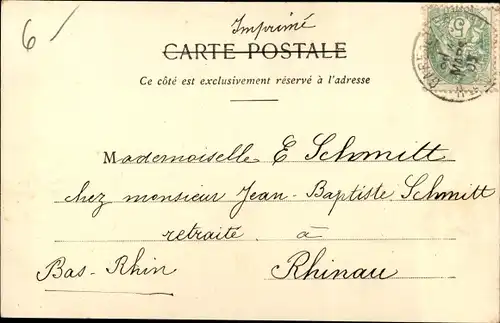 6
Imprimé
CARTE POSTALE
Ce côté est exclusivement réservé à l'adresse
Mademoiselle E Schmitt
chez monsieur Jean-Baptiste Schmitt
retraité à
Bas-Rhin Rhinau